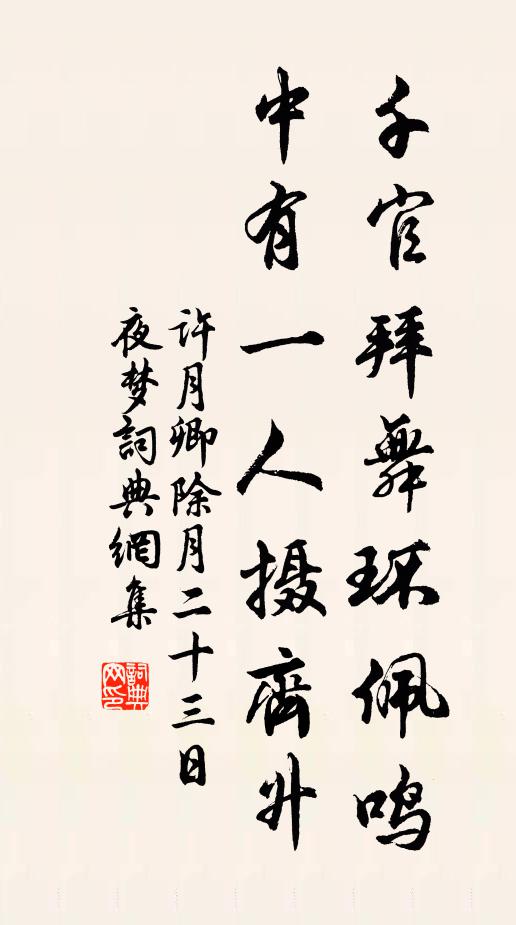 千官拜舞环佩鸣
中有一人摄齊升
许月卿除月二十三日
夜梦詞典網集
詞典網印